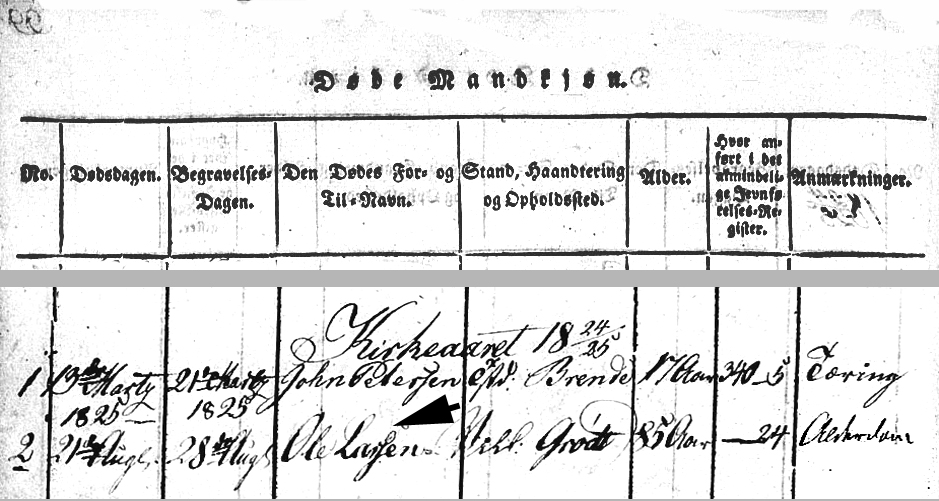 Døde Mandkjøn.
No. Dødsdagen. Begravelses-Dagen. Den Dødes For- og Til-Navn. Stand, Haandtering og Opholdssted. Alder. Hvor anført i det almindelige Jevnførelses-Register. Anmærkninger.
Kirkeaaret 18 24/25
1 13de Marty 1825 21de Marty 1825 John Petersen Brende 17 Aar 340 5 Tæring
2 21de Augt. 28de Augt. Ole Larsen 85 Aar — 24 Alderdom